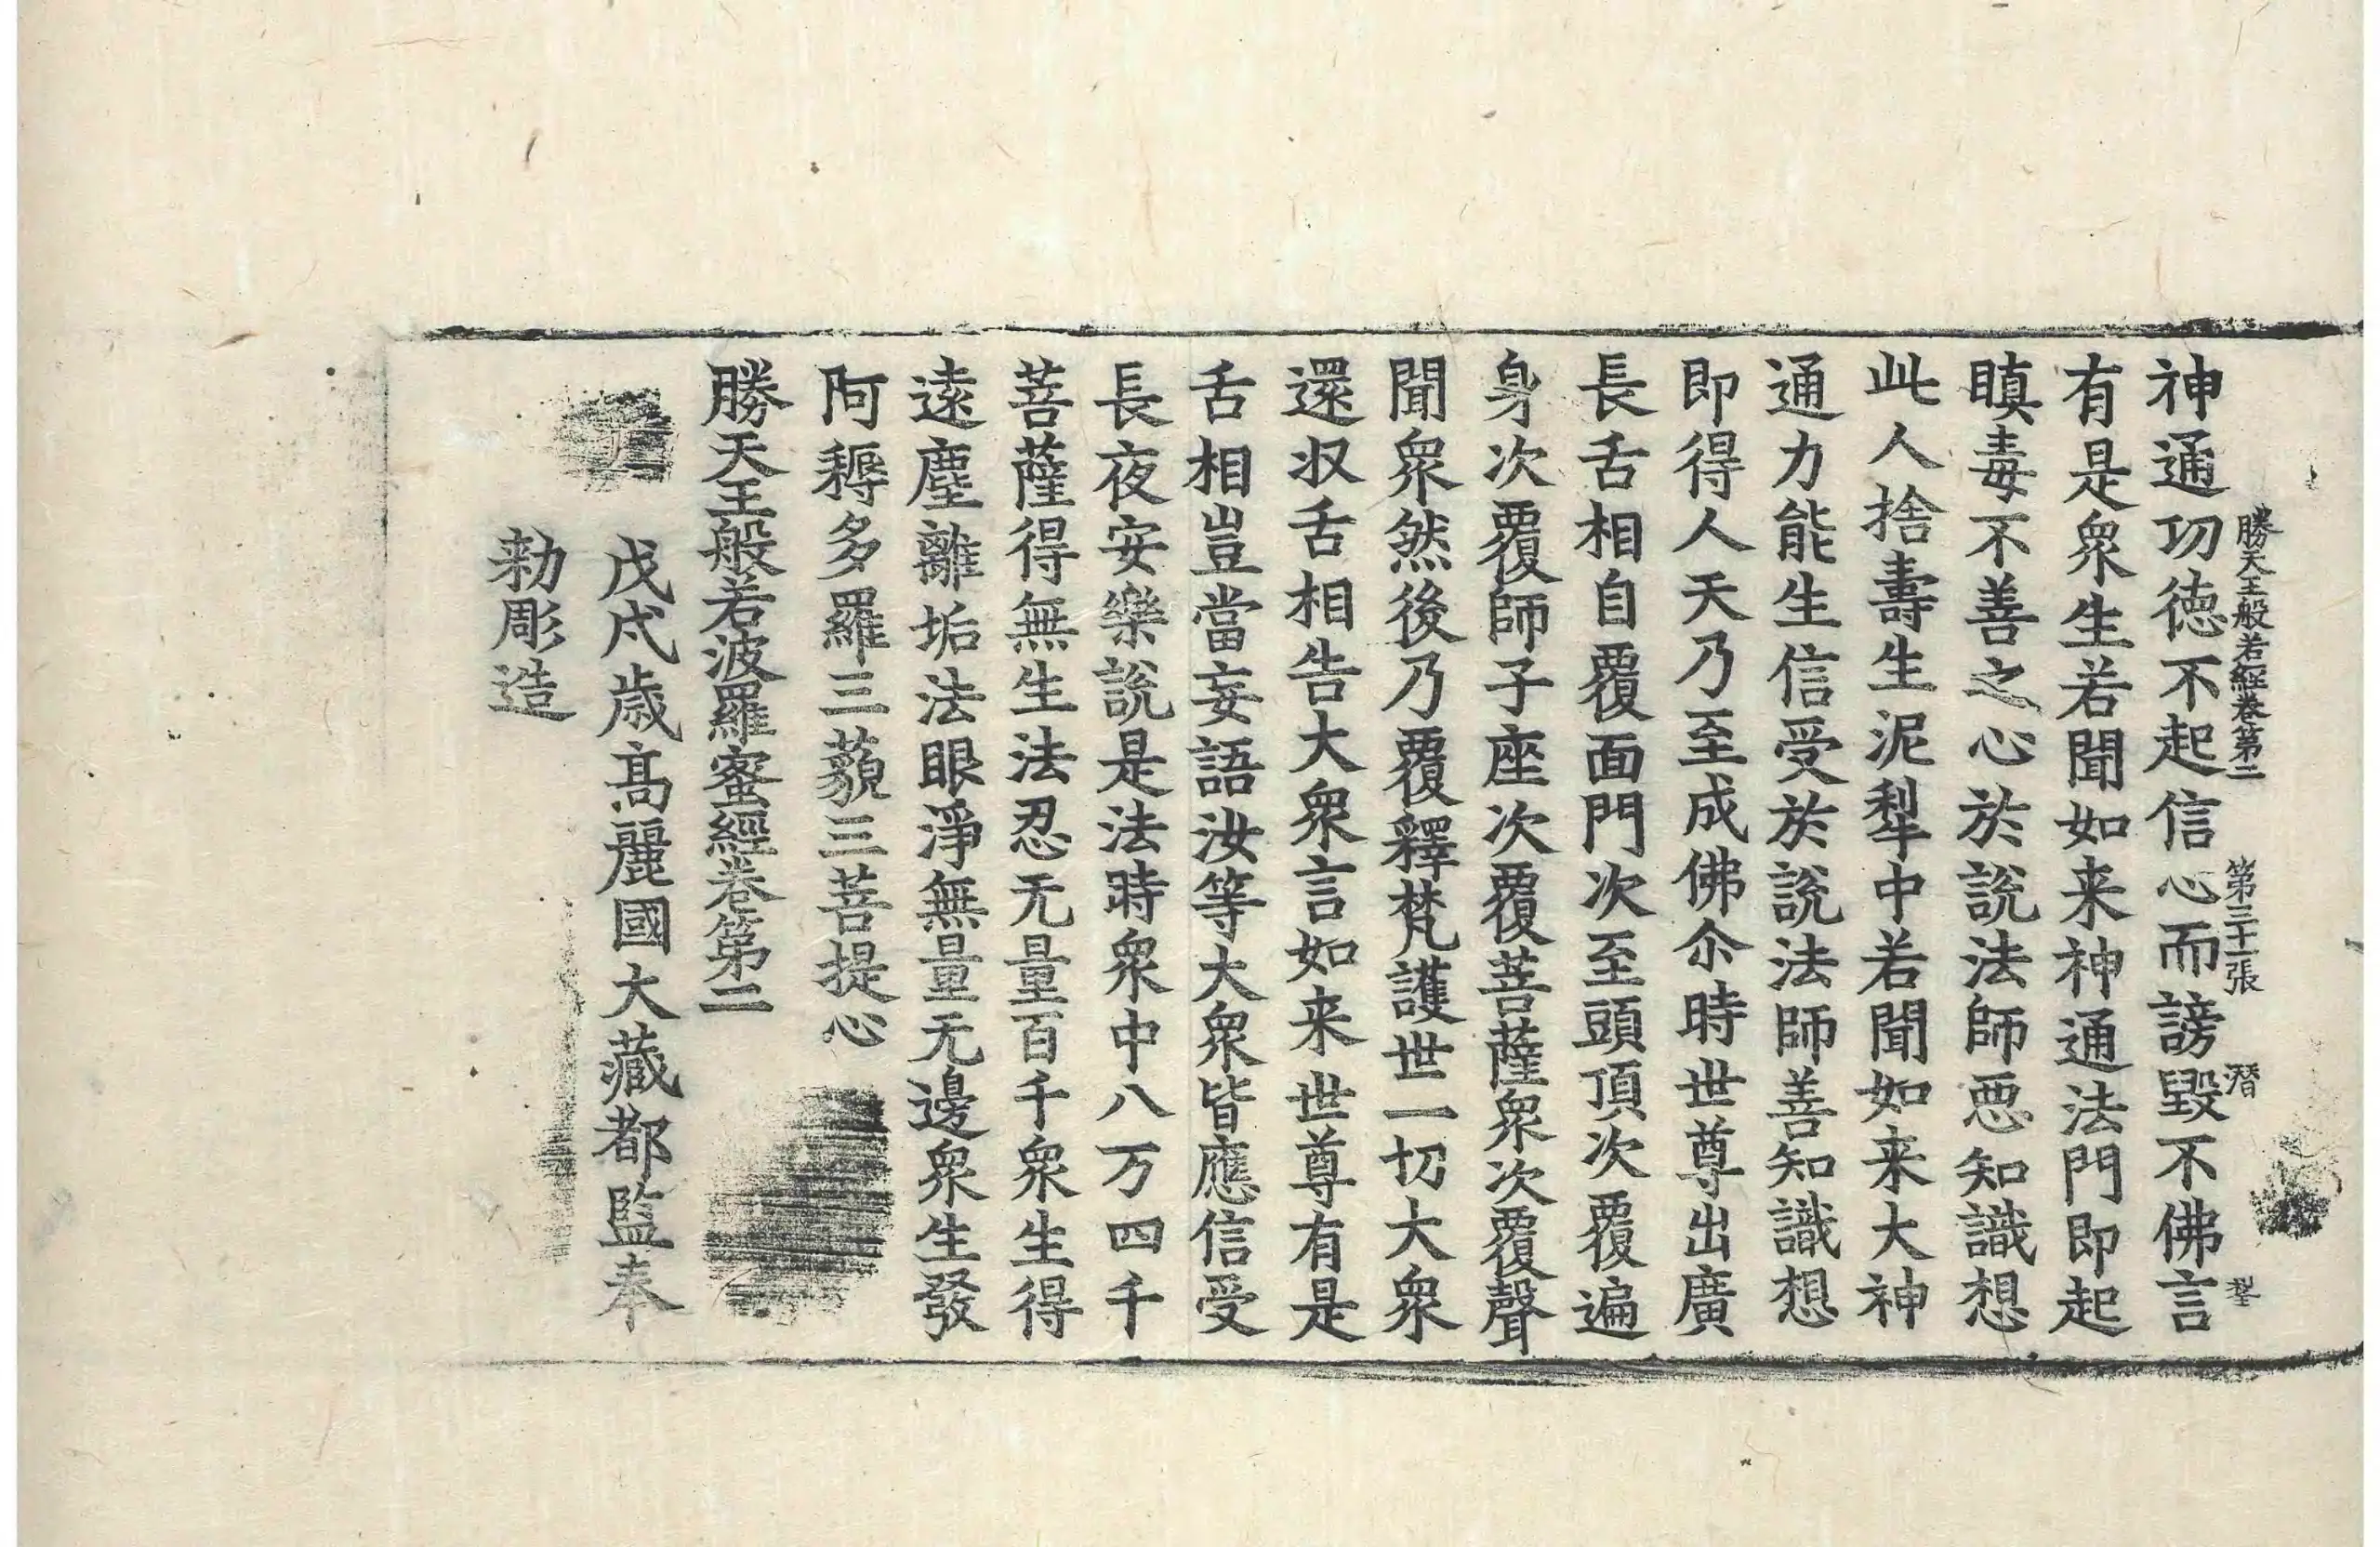 勝天王般若經卷第二　第三十一張　潛
神通功德不起信心而謗毀不佛言
有是衆生若聞如来神通法門即起
瞋毒不善之心於說法師惡知識想
此人捨壽生泥犁中若聞如来大神
通力能生信受於說法師善知識想
即得人天乃至成佛尒時世尊出廣
長舌相自覆面門次至頭頂次覆遍
身次覆師子座次覆菩薩衆次覆聲
聞衆然後乃覆釋梵護世一切大衆
還収舌相告大衆言如来世尊有是
舌相豈當妄語汝等大衆皆應信受
長夜安樂說是法時衆中八万四千
菩薩得無生法忍无量百千衆生得
遠塵離垢法眼淨無量无邊衆生發
阿耨多羅三藐三菩提心
勝天王般若波羅蜜經卷第二
戊戌歲高麗國大藏都監奉
勅彫造